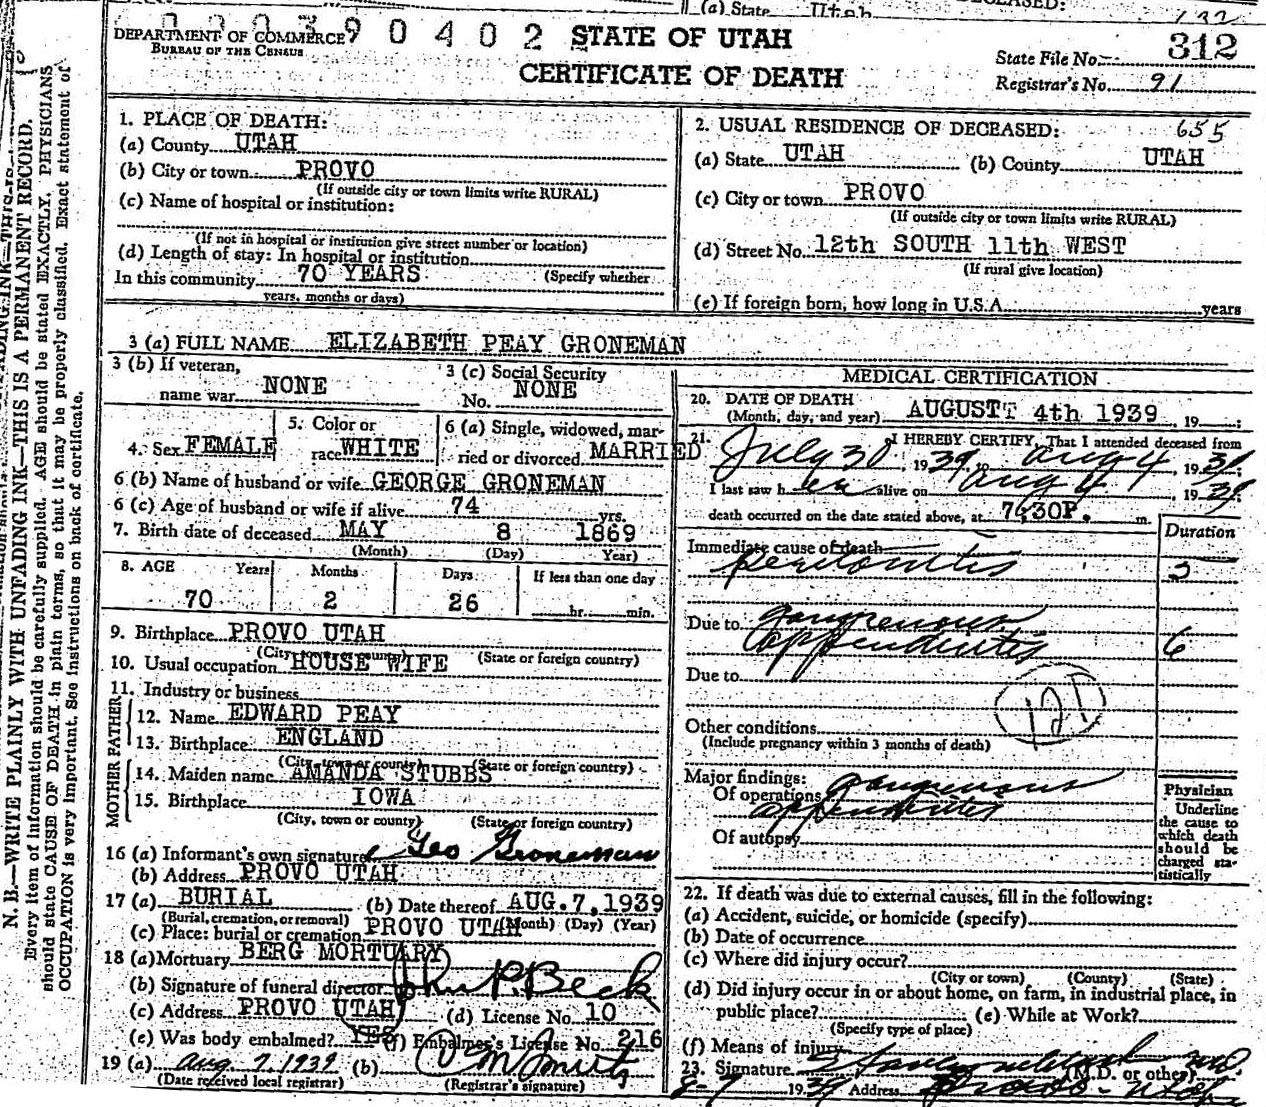 (a) State Utah
0 0 3 9 0 4 0 2
DEPARTMENT OF COMMERCE
BUREAU OF THE CENSUS
STATE OF UTAH
CERTIFICATE OF DEATH
State File No. 312
Registrar's No. 91
N. B.—WRITE PLAINLY WITH UNFADING INK—THIS IS A PERMANENT RECORD.
Every item of information should be carefully supplied. AGE should be stated EXACTLY. PHYSICIANS
should state CAUSE OF DEATH in plain terms, so that it may be properly classified. Exact statement of
OCCUPATION is very important. See instructions on back of certificate.
1. PLACE OF DEATH:
(a) County UTAH
(b) City or town PROVO
(If outside city or town limits write RURAL)
(c) Name of hospital or institution:
(If not in hospital or institution give street number or location)
(d) Length of stay: In hospital or institution
In this community 70 YEARS (Specify whether
years, months or days)
2. USUAL RESIDENCE OF DECEASED: 655
(a) State UTAH (b) County UTAH
(c) City or town PROVO
(If outside city or town limits write RURAL)
(d) Street No. 12th SOUTH 11th WEST
(If rural give location)
(e) If foreign born, how long in U.S.A. years
3 (a) FULL NAME ELIZABETH PEAY GRONEMAN
3 (b) If veteran,
name war NONE
3 (c) Social Security
No. NONE
4. Sex FEMALE
5. Color or
race WHITE
6 (a) Single, widowed, mar-
ried or divorced MARRIED
6 (b) Name of husband or wife GEORGE GRONEMAN
6 (c) Age of husband or wife if alive 74 yrs.
7. Birth date of deceased MAY 8 1869
(Month) (Day) Year)
8. AGE Years Months Days If less than one day
70 2 26 hr. min.
9. Birthplace PROVO UTAH
(City town or county) (State or foreign country)
10. Usual occupation HOUSE WIFE
11. Industry or business
FATHER
12. Name EDWARD PEAY
13. Birthplace ENGLAND
(City town or county) (State or foreign country)
MOTHER
14. Maiden name AMANDA STUBBS
15. Birthplace IOWA
(City, town or county) (State or foreign country)
16 (a) Informant's own signature Geo Groneman
(b) Address PROVO UTAH
17 (a) BURIAL (b) Date thereof AUG. 7, 1939
(Burial, cremation, or removal) (Month) (Day) (Year)
(c) Place: burial or cremation PROVO UTAH
18 (a) Mortuary BERG MORTUARY
(b) Signature of funeral director John P. Beck
(c) Address PROVO UTAH (d) License No. 10
(e) Was body embalmed? YES (f) Embalmer's License No. 216
19 (a) Aug. 7, 1939 (b)
(Date received local registrar) (Registrar's signature)
MEDICAL CERTIFICATION
20. DATE OF DEATH
(Month, day, and year) AUGUST 4th 1939, 19 ;
21. I HEREBY CERTIFY, That I attended deceased from
July 30, 1939, to Aug 4, 1939;
I last saw her alive on Aug 4, 1939;
death occurred on the date stated above, at 7:30P. m.
Duration
Immediate cause of death
peritonitis
Due to gangrenous
appendicitis 6
Due to
121
Other conditions
(Include pregnancy within 3 months of death)
Major findings:
Of operations gangrenous
appendicitis
Of autopsy
Physician
Underline
the cause to
which death
should be
charged sta-
tistically
22. If death was due to external causes, fill in the following:
(a) Accident, suicide, or homicide (specify)
(b) Date of occurrence
(c) Where did injury occur?
(City or town) (County) (State)
(d) Did injury occur in or about home, on farm, in industrial place, in
public place? (e) While at Work?
(Specify type of place)
(f) Means of injury
23. Signature (M.D. or other)
8-7 1939 Address Provo - Utah